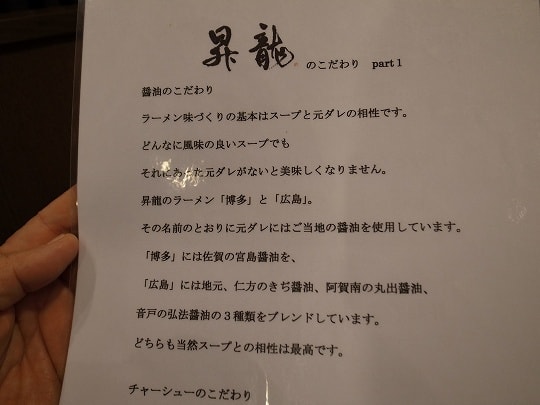 昇龍 のこだわり part 1
醤油のこだわり
ラーメン味づくりの基本はスープと元ダレの相性です。
どんなに風味の良いスープでも
それにあった元ダレがないと美味しくなりません。
昇龍のラーメン「博多」と「広島」。
その名前のとおりに元ダレにはご当地の醤油を使用しています。
「博多」には佐賀の宮島醤油を、
「広島」には地元、仁方のきぢ醤油、阿賀南の丸出醤油、
音戸の弘法醤油の3種類をブレンドしています。
どちらも当然スープとの相性は最高です。
チャーシューのこだわり